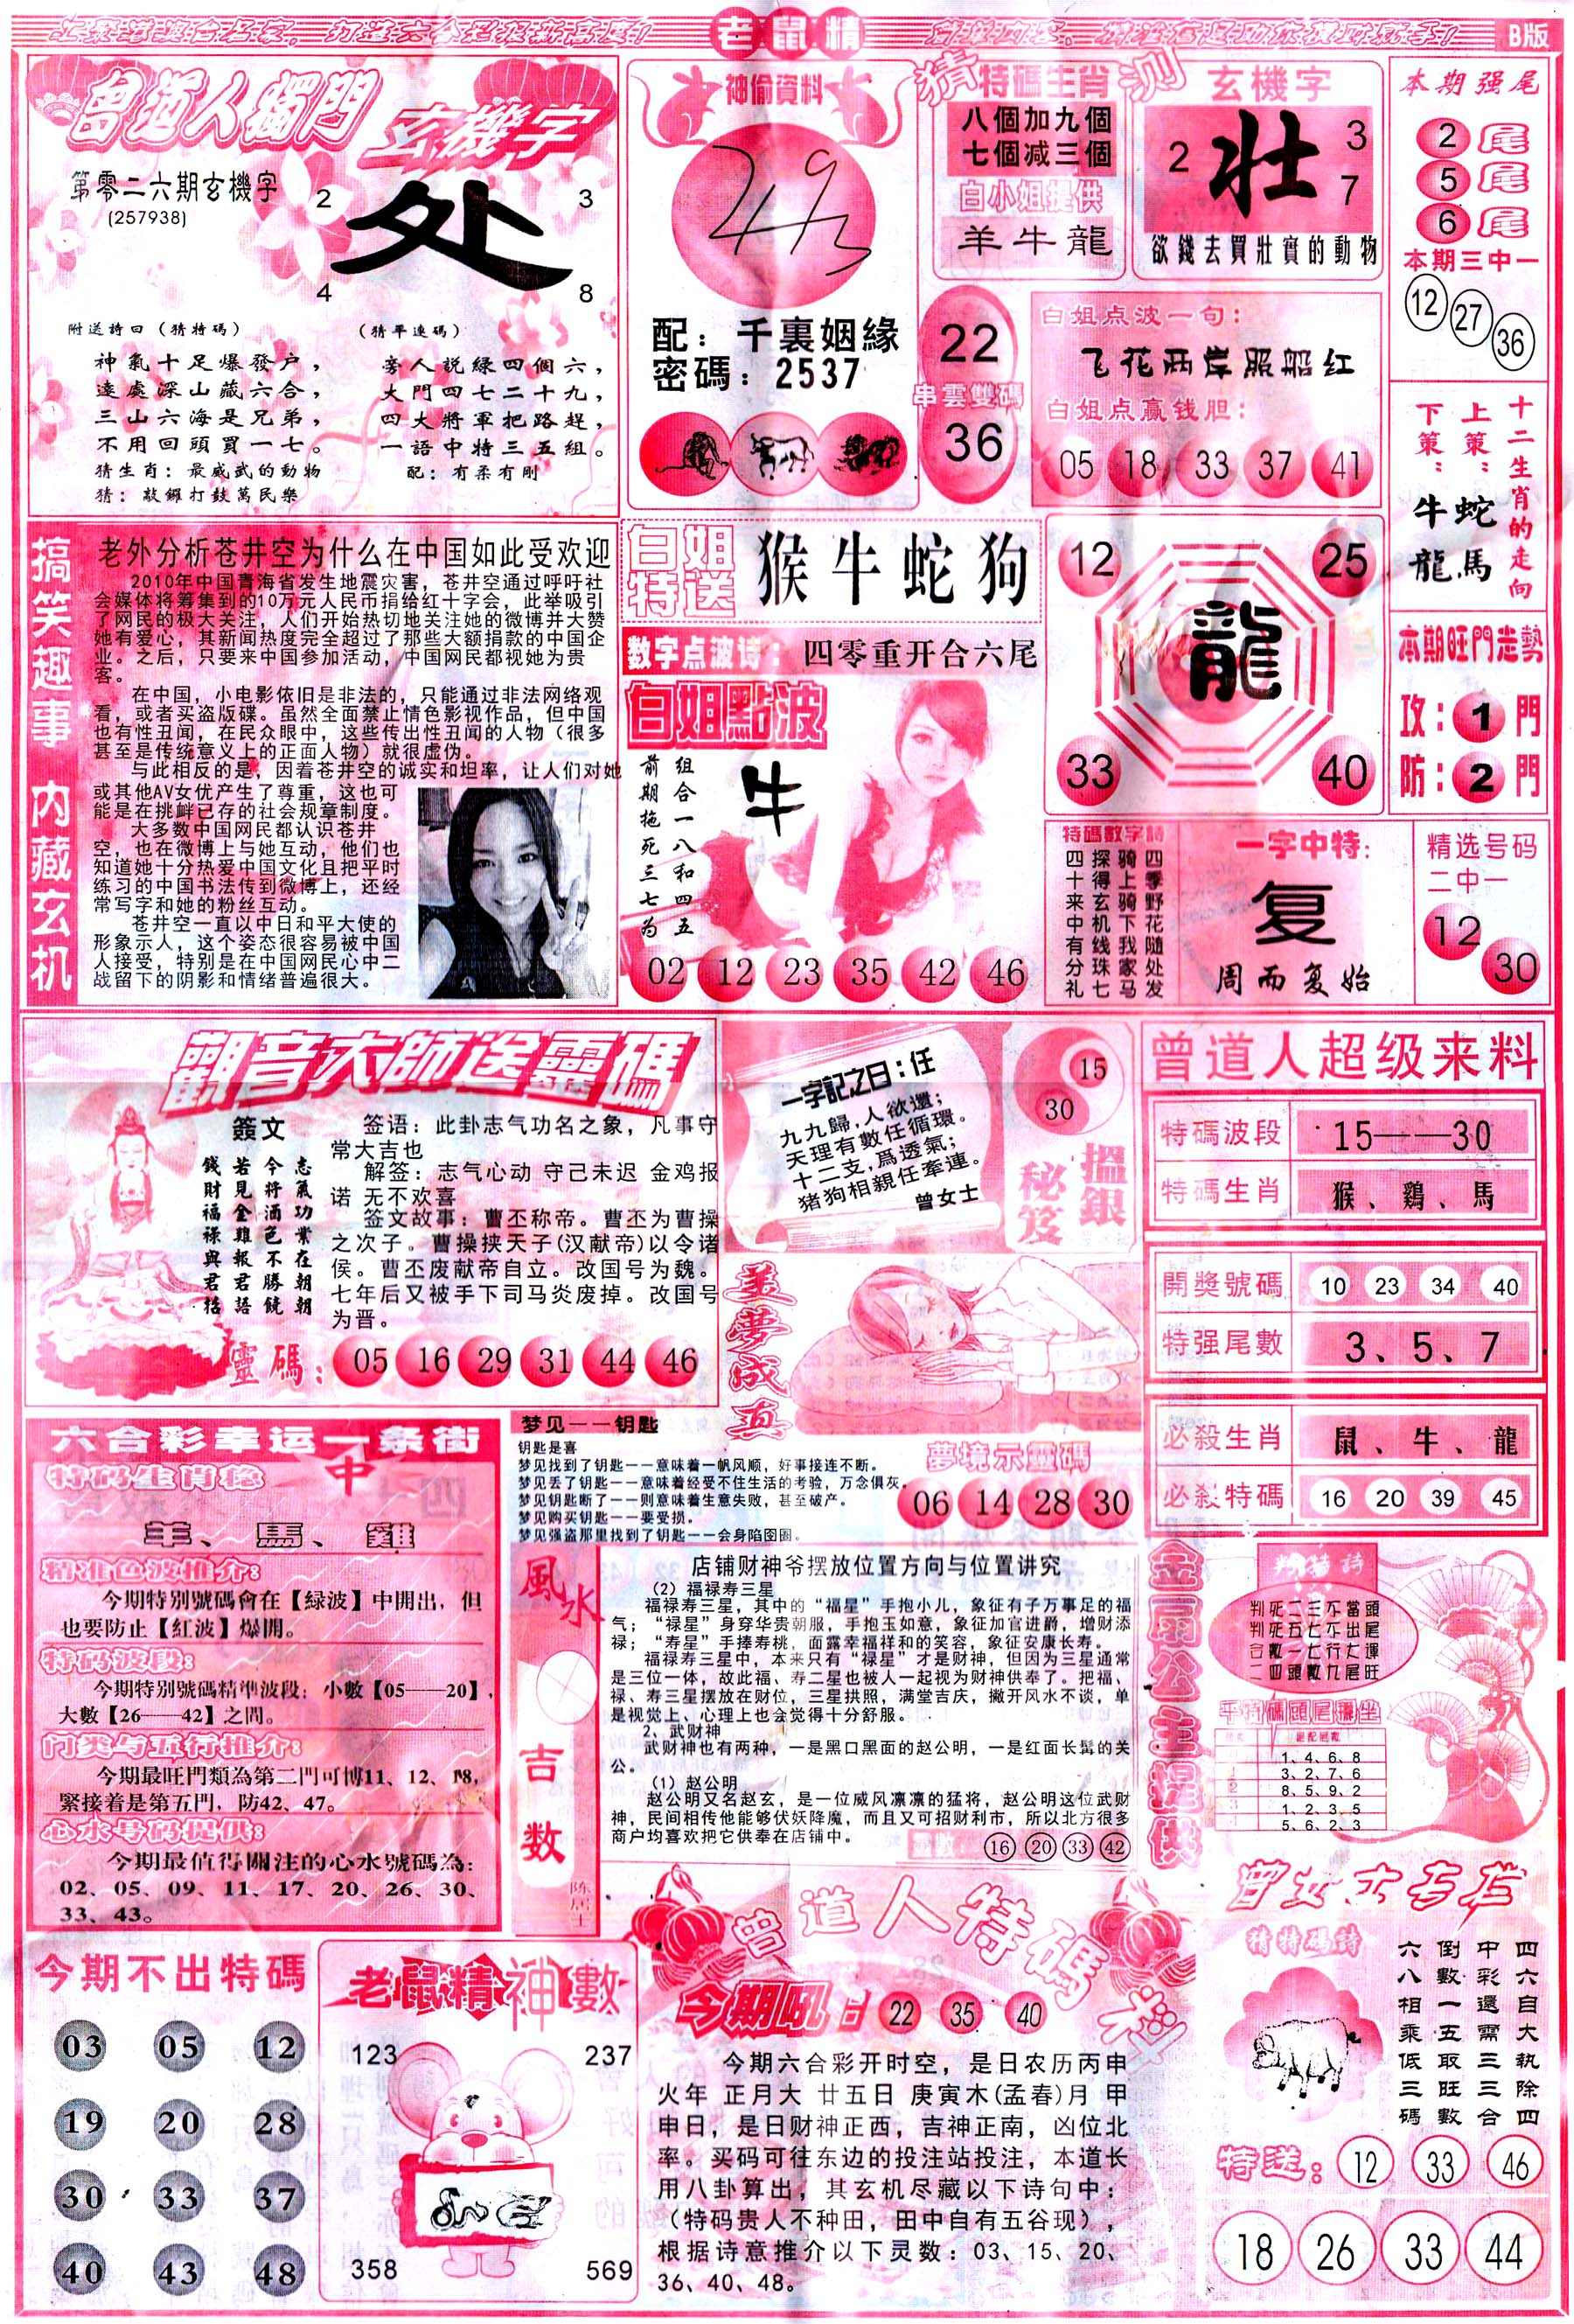 老鼠精
B版
曾道人獨門
玄機字
第零二六期玄機字
(257938)
2
3
处
4
8
附送詩曰（猜特碼）
神氣十足爆發户，
遠處深山藏六合，
三山六海是兄弟，
不用回頭買一七。
猜生肖：最威武的動物
猜：敲鑼打鼓萬民樂
（猜平連碼）
旁人説緑四個六，
大門四七二十九，
四大將軍把路趕，
一語中特三五組。
配：有柔有剛
神偷資料
配：千裏姻緣
密碼：2537
猜
特碼生肖
测
八個加九個
七個减三個
白小姐提供
羊牛龍
玄機字
2
壮
3
7
欲錢去買壯實的動物
本期强尾
2尾
5尾
6尾
本期三中一
12
27
36
22
串雲雙碼
36
白姐点波一句：
飞花两岸照船红
白姐点赢钱胆：
05 18 33 37 41
十二生肖的走向
上策：蛇馬
下策：牛龍
搞笑趣事 内藏玄机
老外分析苍井空为什么在中国如此受欢迎
2010年中国青海省发生地震灾害，苍井空通过呼吁社
会媒体将筹集到的10万元人民币捐给红十字会，此举吸引
了网民的极大关注，人们开始热切地关注她的微博并大赞
她有爱心，其新闻热度完全超过了那些大额捐款的中国企
业。之后，只要来中国参加活动，中国网民都视她为贵
客。
在中国，小电影依旧是非法的，只能通过非法网络观
看，或者买盗版碟。虽然全面禁止情色影视作品，但中国
也有性丑闻，在民众眼中，这些传出性丑闻的人物（很多
甚至是传统意义上的正面人物）就很虚伪。
与此相反的是，因着苍井空的诚实和坦率，让人们对她
或其他AV女优产生了尊重，这也可
能是在挑衅已存的社会规章制度。
大多数中国网民都认识苍井
空，也在微博上与她互动，他们也
知道她十分热爱中国文化且把平时
练习的中国书法传到微博上，还经
常写字和她的粉丝互动。
苍井空一直以中日和平大使的
形象示人，这个姿态很容易被中国
人接受，特别是在中国网民心中二
战留下的阴影和情绪普遍很大。
白姐特送
猴牛蛇狗
数字点波诗：四零重开合六尾
白姐點波
组合一八和四五
前期拖死三七为
牛
02 12 23 35 42 46
12
25
龍
33
40
本期旺門走勢
攻：1門
防：2門
特碼數字詩
四季野花随处发
骑上骑下我家马
探得玄机线珠七
四十来中有分礼
一字中特：
复
周而复始
精选号码
二中一
12
30
觀音大師送靈碼
簽文
志氣功業在朝朝
今將酒色不勝饒
若見金雞報君語
錢財福祿與君括
签语：此卦志气功名之象，凡事守
常大吉也
解签：志气心动 守己未迟 金鸡报
诺 无不欢喜
签文故事：曹丕称帝。曹丕为曹操
之次子。曹操挟天子(汉献帝)以令诸
侯。曹丕废献帝自立。改国号为魏。
七年后又被手下司马炎废掉。改国号
为晋。
靈碼：05 16 29 31 44 46
一字記之曰：任
九九歸，人欲還；
天理有數任循環。
十二支，爲透氣；
猪狗相親任牽連。
曾女士
15
30
搵銀秘笈
美夢成真
曾道人超级来料
特碼波段 15——30
特碼生肖 猴、鷄、馬
開獎號碼 10 23 34 40
特强尾數 3、5、7
必殺生肖 鼠、牛、龍
必殺特碼 16 20 39 45
梦见——钥匙
钥匙是喜
梦见找到了钥匙——意味着一帆风顺，好事接连不断。
梦见丢了钥匙——意味着经受不住生活的考验，万念俱灰。
梦见钥匙断了——则意味着生意失败，甚至破产。
梦见购买钥匙——要受损。
梦见强盗那里找到了钥匙——会身陷囹圄。
夢境示靈碼
06 14 28 30
六合彩幸运一条街
特码生肖稳中
羊、馬、雞
精准色波推介：
今期特别號碼會在【緑波】中開出，但
也要防止【紅波】爆開。
特码波段：
今期特别號碼精準波段：小數【05——20】，
大數【26——42】之間。
门类与五行推介：
今期最旺門類為第二門可博11、12、18，
緊接着是第五門，防42、47。
心水号码提供：
今期最值得關注的心水號碼為：
02、05、09、11、17、20、26、30、
33、43。
風水
吉数
陈居士
店铺财神爷摆放位置方向与位置讲究
（2）福禄寿三星
福禄寿三星，其中的“福星”手抱小儿，象征有子万事足的福
气；“禄星”身穿华贵朝服，手抱玉如意，象征加官进爵，增财添
禄；“寿星”手捧寿桃，面露幸福祥和的笑容，象征安康长寿。
福禄寿三星中，本来只有“禄星”才是财神，但因为三星通常
是三位一体，故此福、寿二星也被人一起视为财神供奉了。把福、
禄、寿三星摆放在财位，三星拱照，满堂吉庆，撇开风水不谈，单
是视觉上、心理上也会觉得十分舒服。
2、武财神
武财神也有两种，一是黑口黑面的赵公明，一是红面长髯的关
公。
（1）赵公明
赵公明又名赵玄，是一位威风凛凛的猛将，赵公明这位武财
神，民间相传他能够伏妖降魔，而且又可招财利市，所以北方很多
商户均喜欢把它供奉在店铺中。
16 20 33 42
金扇公主提供
判特詩
判死二三不當頭
判死五七不出尾
合數一七行大運
二四頭數九尾旺
平特碼頭尾攤坐
1、4、6、8
3、2、7、6
8、5、9、2
1、2、3、5
5、6、2、3
今期不出特碼
03 05 12
19 20 28
30 33 37
40 43 48
老鼠精神數
123
237
358
569
曾道人特碼
今期吼：22 35 40
今期六合彩开时空，是日农历丙申
火年 正月大 廿五日 庚寅木(孟春)月 甲
申日，是日财神正西，吉神正南，凶位北
率。买码可往东边的投注站投注，本道长
用八卦算出，其玄机尽藏以下诗句中：
（特码贵人不种田，田中自有五谷现），
根据诗意推介以下灵数：03、15、20、
36、40、48。
曾女士专栏
猜特碼詩
四六自大執除四
中彩還需三三合
倒數一五取旺數
六八相乘低三碼
特送：12 33 46
18 26 33 44